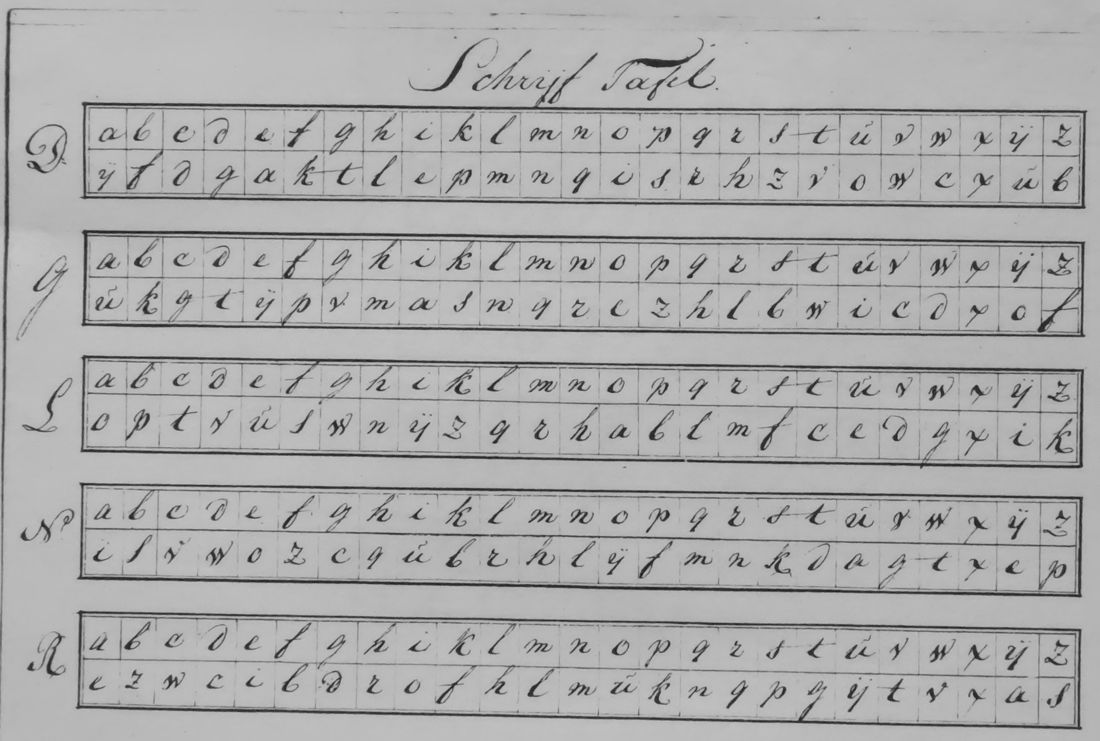 Schrÿf Tafel.
D. a b c d e f g h i k l m n o p q r s t ú v w x ÿ z
ÿ f d g a k t l e p m n q i s r h z v o w c x ú b
G a b c d e f g h i k l m n o p q r s t ú v w x ÿ z
ú k g t ÿ p v m a s n q r e z h l b w i c d x o f
L a b c d e f g h i k l m n o p q r s t ú v w x ÿ z
o p t v ú s w n ÿ z q r h a b l m f c e d g x i k
N a b c d e f g h i k l m n o p q r s t ú v w x ÿ z
i s v w o z c q ú b r h l ÿ f m n k d a g t x e p
R a b c d e f g h i k l m n o p q r s t ú v w x ÿ z
e z w c i b d r o f h l m ú k n q p g ÿ t v x a s